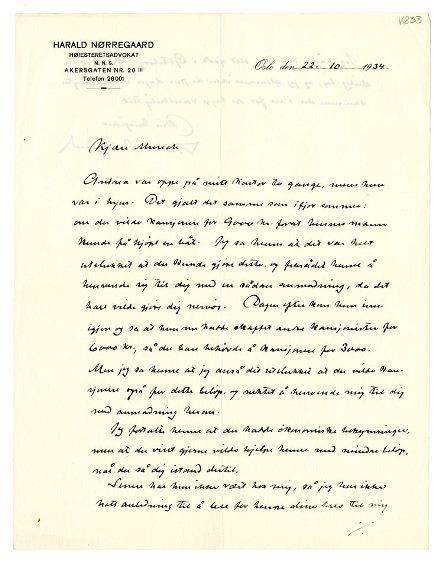 K833
HARALD NØRREGAARD
HØIESTERETSADVOKAT
M. N. S.
AKERSGATEN NR. 20 III
Telefon 26001
Oslo den 22. 10 1934.
Kjære Munch
Andrea var oppe på mitt kontor to gange, mens hun
var i byen. Det gjaldt det samme som ifjor sommer:
om du vilde kausjonere for 9000 kr. forat hennes mann
kunde få kjøpt en båt. Jeg sa henne at det var helt
utelukket at du kunde gjøre dette, og frarådet henne å
henvende sig til dig med en sådan anmodning, da det
bare vilde gjøre dig nervøs. Dagen efter kom hun inn
igjen og sa at hun nu hadde skaffet andre kausjonister for
6000 kr, så du bare behøvde å kausjonere for 3000.
Men jeg sa henne at jeg anså det utelukket at du vilde kau-
sjonere også for dette beløp, og nektet å henvende mig til dig
med anmodning herom.
Jeg fortalte henne at du hadde økonomiske bekymringer,
men at du visst gjerne vilde hjelpe henne med mindre beløp,
når du så dig istand dertil.
Senere har hun ikke vært hos mig, så jeg har ikke
hatt anledning til å lese for henne dine brev til mig